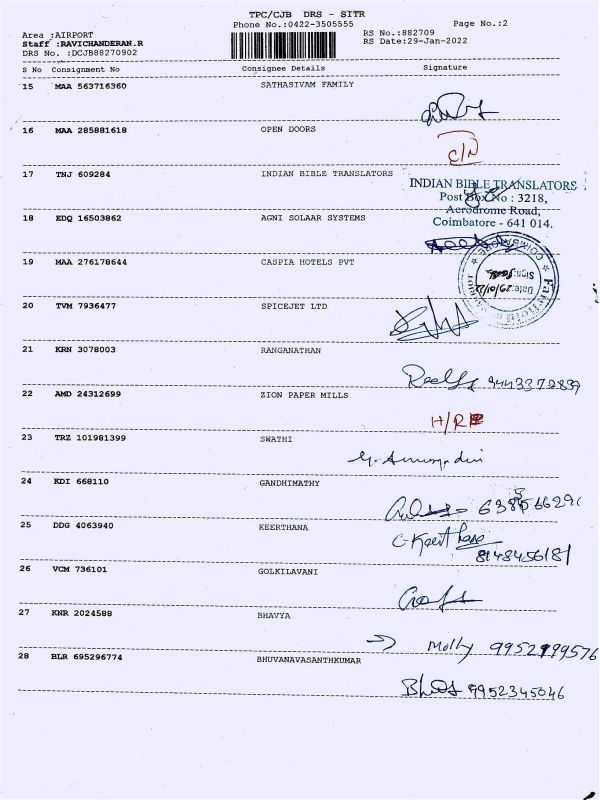 TPC/CJB DRS - SITR
Phone No.:0422-3505555
Page No.:2
Area :AIRPORT
RS No.:882709
Staff :RAVICHANDERAN.R
RS Date:29-Jan-2022
DRS No. :DCJB88270902
S No Consignment No Consignee Details Signature
15 MAA 563716360 SATHASIVAM FAMILY
16 MAA 285881618 OPEN DOORS
C/N
17 TNJ 609284 INDIAN BIBLE TRANSLATORS
INDIAN BIBLE TRANSLATORS
Post Box No : 3218,
18 EDQ 16503862 AGNI SOLAAR SYSTEMS
Aerodrome Road,
Coimbatore - 641 014.
19 MAA 276178644 CASPIA HOTELS PVT
Date:29/01/22
Sign:
20 TVM 7936477 SPICEJET LTD
21 KRN 3078003 RANGANATHAN
9443372839
22 AMD 24312699 ZION PAPER MILLS
H/R
23 TRZ 101981399 SWATHI
24 KDI 668110 GANDHIMATHY
25 DDG 4063940 KEERTHANA
C-Keerthana
8148456181
26 VCM 736101 GOLKILAVANI
27 KNR 2024588 BHAVYA
Molly
28 BLR 695296774 BHUVANAVASANTHKUMAR
9952345046